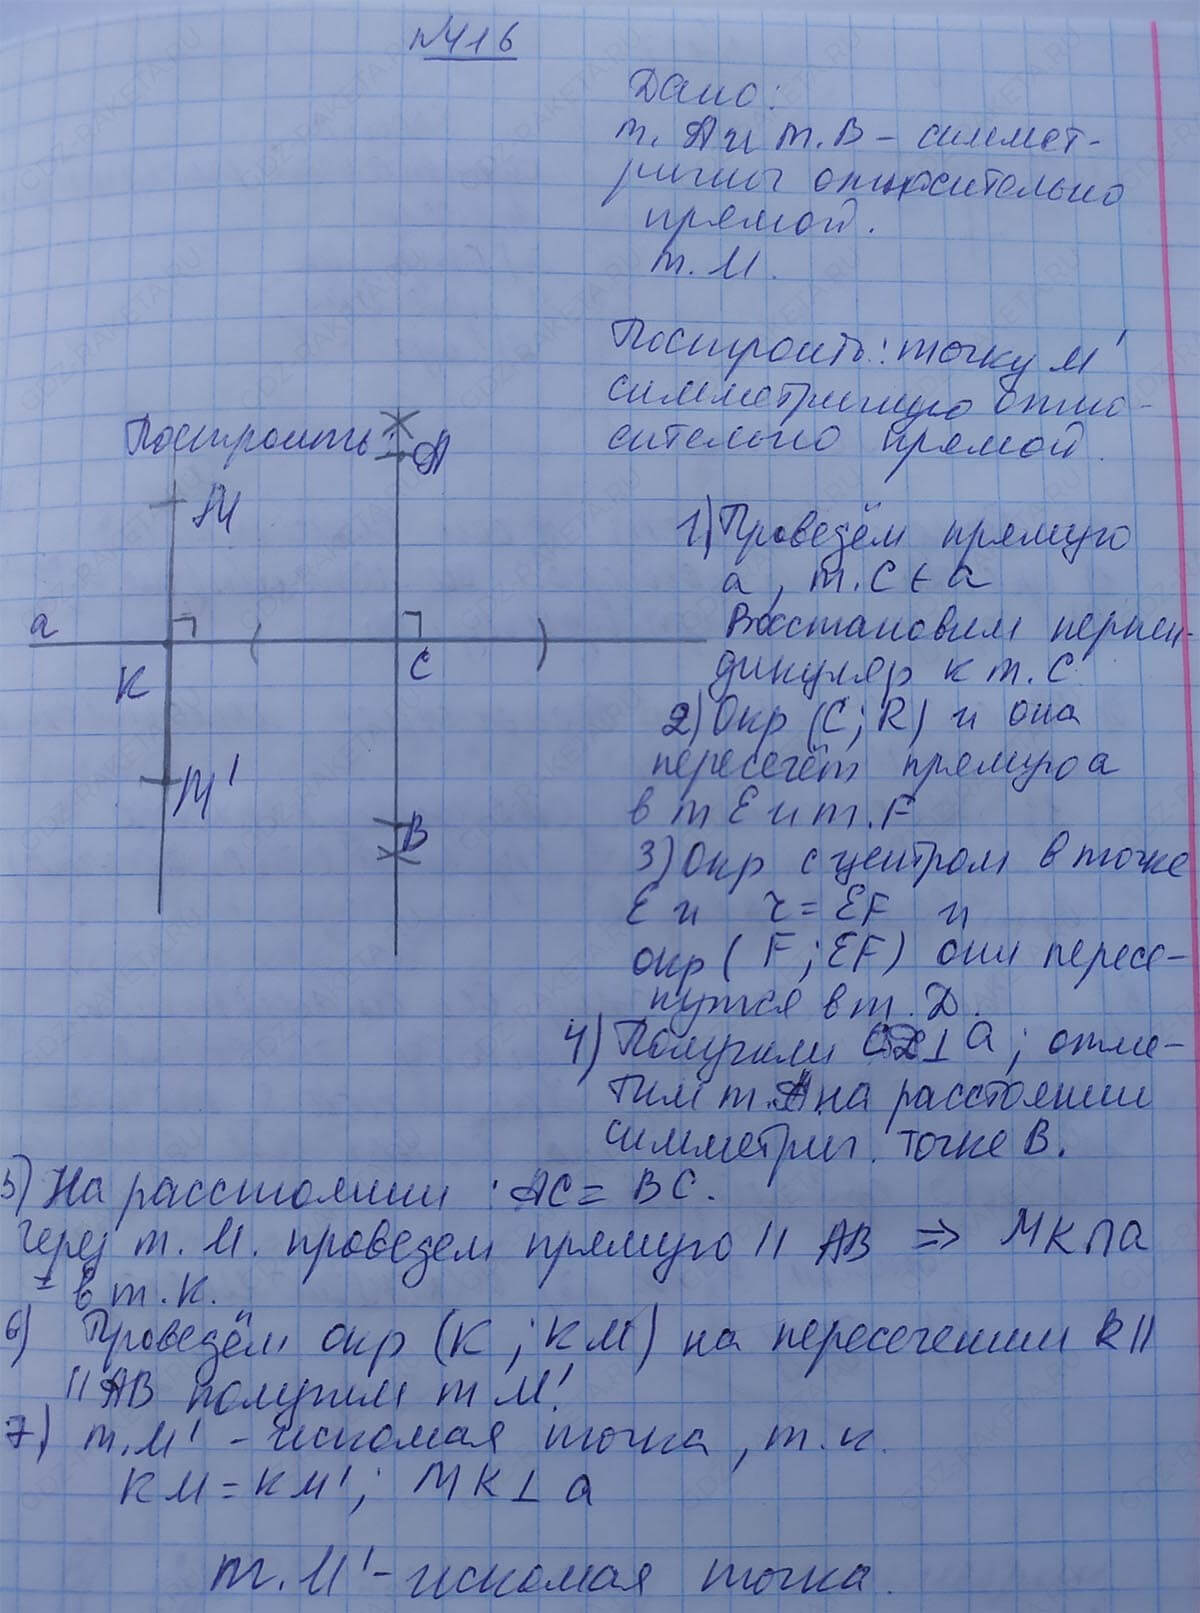 №416
Дано:
т. A и т. B – симмет-
ричны относительно
прямой.
т. M.
Построить: точку M'
симметричную отно-
сительно прямой.
Построить:
A
M
a
K
C
M'
B
1) Проведём прямую
a, т. C ∈ a
Восстановим перпен-
дикуляр к т. C
2) Окр (C; R) и она
пересечёт прямую a
в т E и т. F
3) Окр с центром в точке
E и r = EF и
окр (F; EF) они пересе-
кутся в т. Д.
4) Получили CД ⊥ a; отме-
тим т. A на расстоянии
симметрич. точке B.
5) На расстоянии: AC = BC.
через т. M. проведем прямую || AB ⇒ MK ∩ a
в т. K.
6) Проведём окр (K; KM) на пересечении ||
|| AB получим т M'.
7) т. M' – искомая точка, т. к.
KM = KM'; MK ⊥ a
т. M' – искомая точка.
GDZ-RAKETA.RU